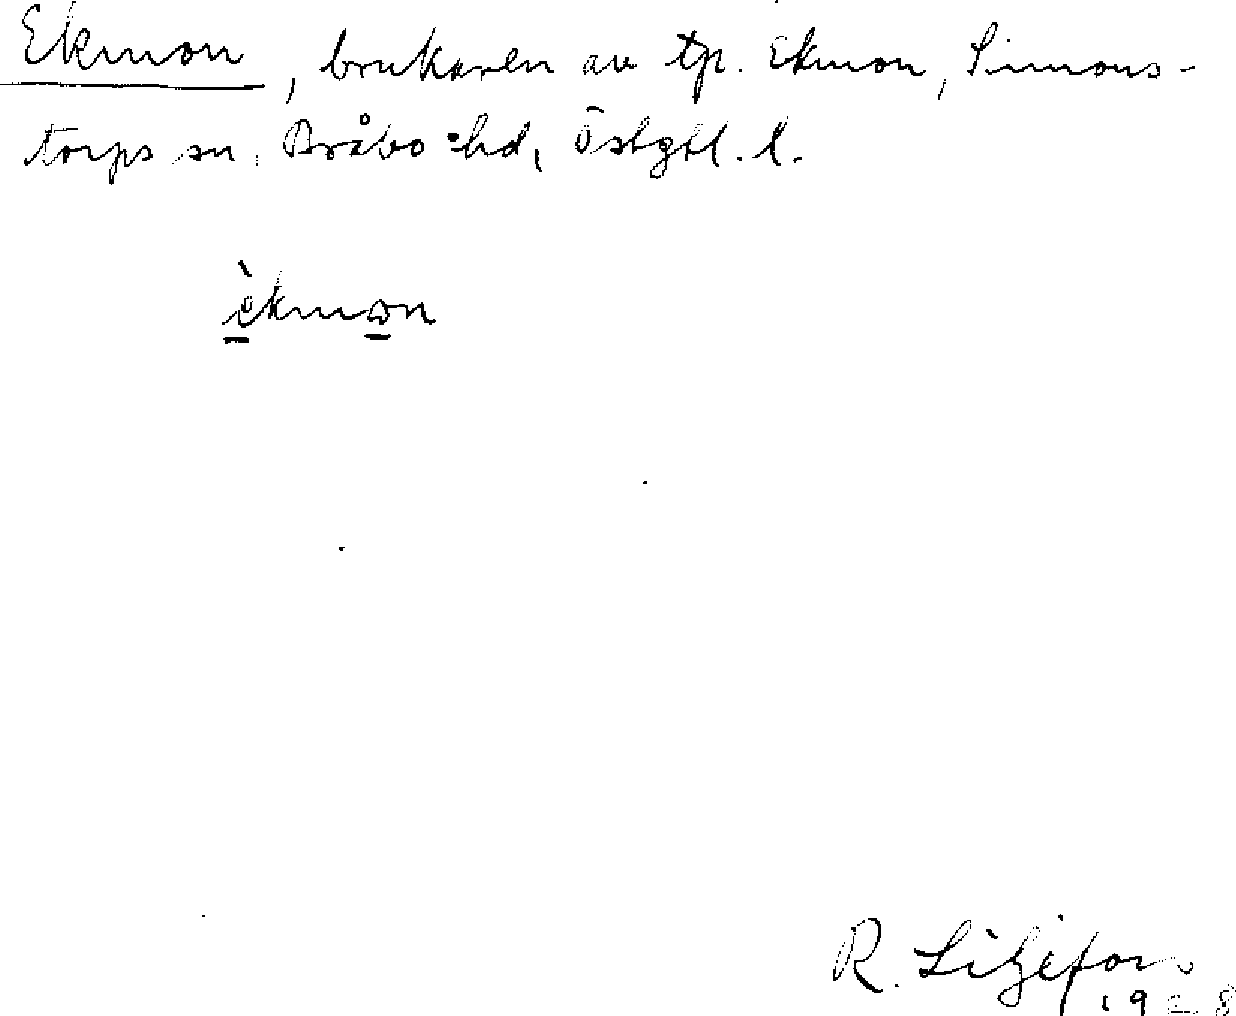 Ekmon, brukaren av tp. Ekmon, Simons-
torps sn. Bråbo hd, Östgtl. l.
èkmon
R. Liljefors
1928